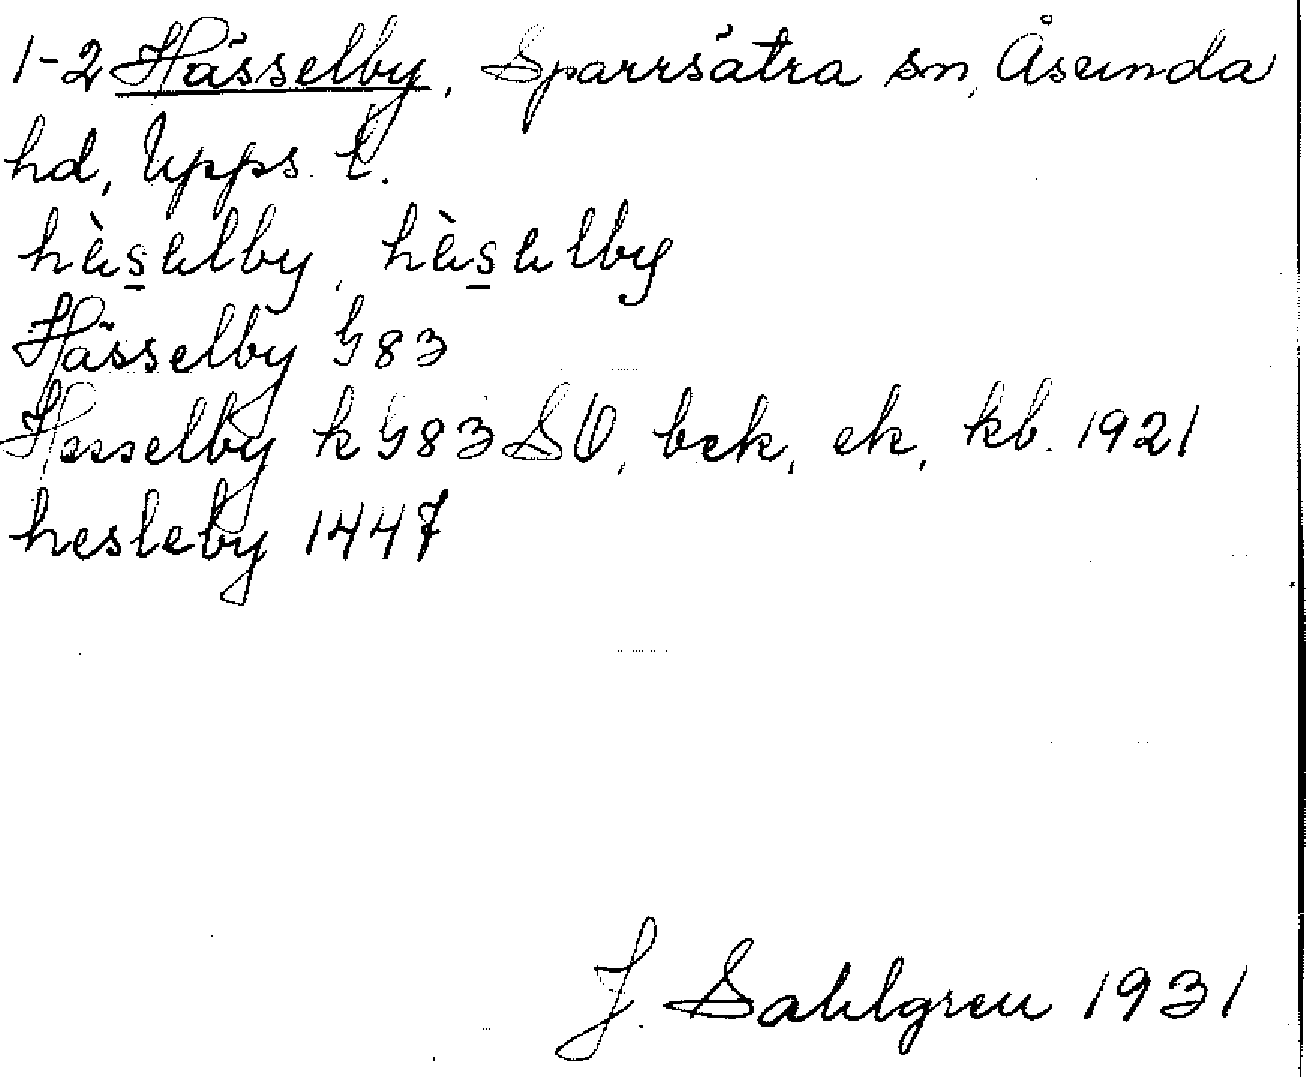 1-2 Hässelby, Sparrsätra sn, Åsunda
hd, Upps. l.
hä̀s̲ælby, hä̀s̲ælby
Hässelby G83
Hesselby k G83 SO, bek, ek, kb. 1921
hesleby 1447
J. Sahlgren 1931